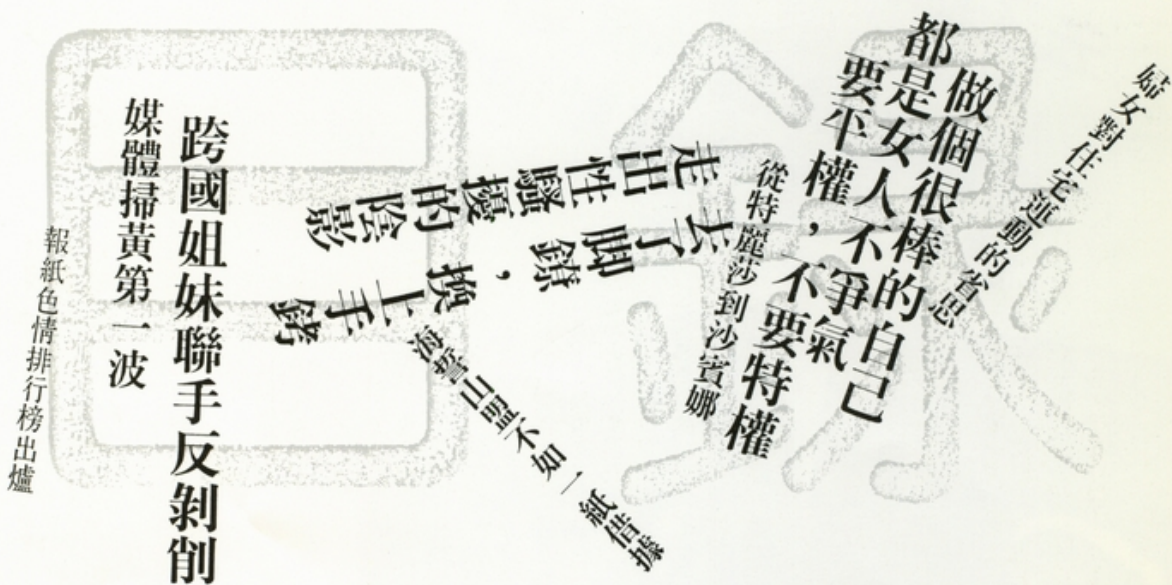 目錄
婦女對住宅運動的省思
做個很棒的自己
都是女人不爭氣
要平權，不要特權
從特麗莎到沙賓娜
走出性騷擾的陰影
去了腳鐐，換上手銬
海誓山盟不如一紙借據
跨國姐妹聯手反剝削
媒體掃黃第一波
報紙色情排行榜出爐